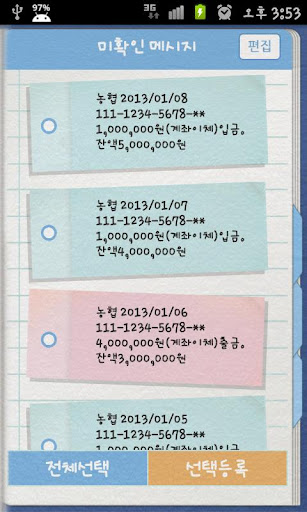 97%
3G
오후 3:53
미확인 메시지
편집
농협 2013/01/08
111-1234-5678-**
1,000,000원(계좌이체)입금.
잔액5,000,000원
농협 2013/01/07
111-1234-5678-**
1,000,000원(계좌이체)입금.
잔액4,000,000원
농협 2013/01/06
111-1234-5678-**
4,000,000원(계좌이체)출금.
잔액3,000,000원
농협 2013/01/05
111-1234-5678-**
1,000,000원(계좌이체)입금.
전체선택
선택등록